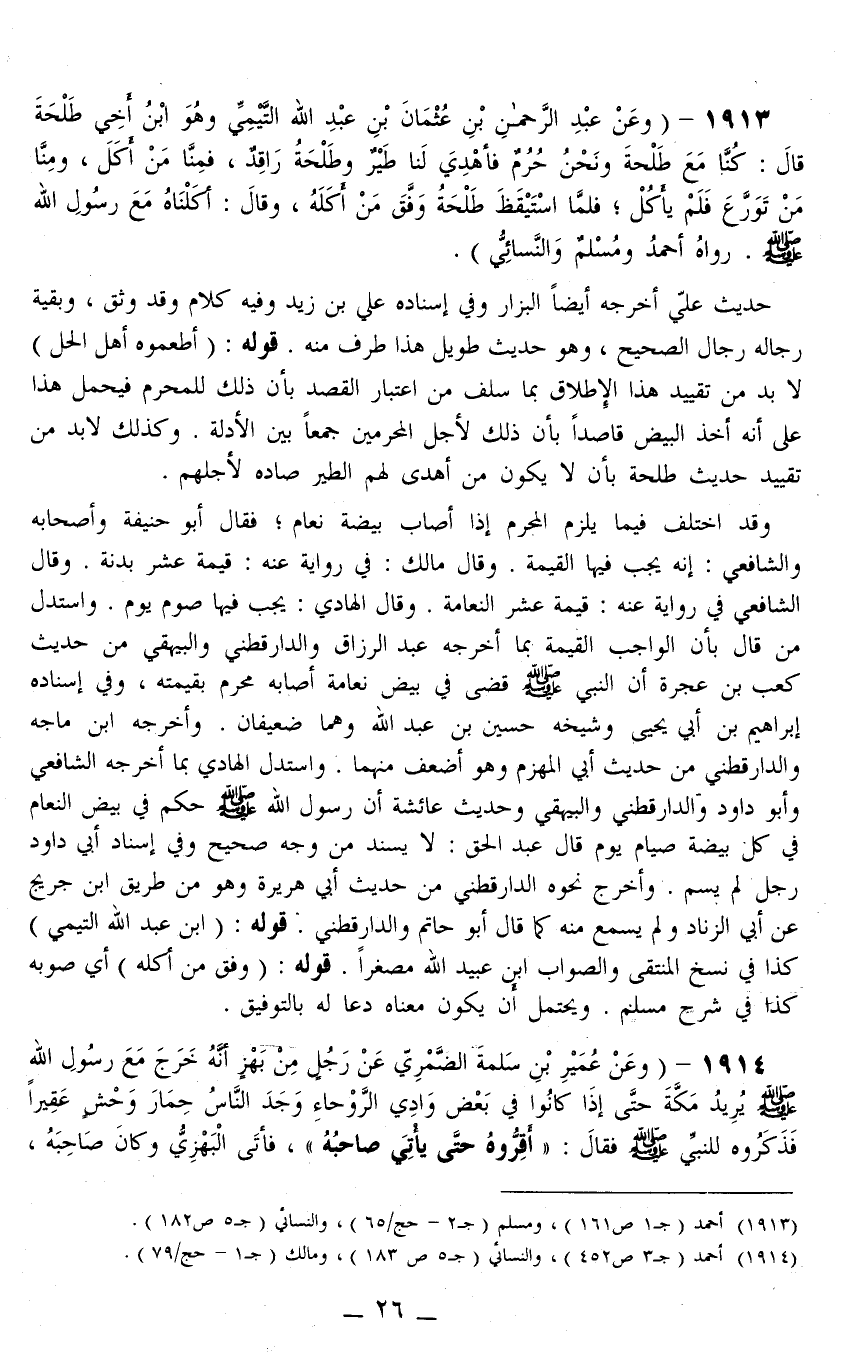 ١٩١٣ - ( وعَنْ عبْدِ الرَّحمٰنِ بْنِ عُثْمَانَ بْنِ عبْدِ الله التَّيْمِيِّ وهُوَ ابْنُ أَخِي طَلْحَةَ
قالَ : كُنَّا مَعَ طَلْحةَ ونَحْنُ حُرُمٌ فأهْدِيَ لَنا طَيْرٌ وطَلْحَةُ رَاقِدٌ ، فمِنَّا مَنْ أَكَلَ ، ومِنَّا
مَنْ تَوَرَّعَ فَلَمْ يأكُلْ ؛ فلمَّا اسْتَيْقَظَ طَلْحَةُ وَفَّقَ مَنْ أَكَلَهُ ، وقالَ : أكَلْنَاهُ مَعَ رسُولِ الله
ﷺ . رواهُ أحمدُ ومُسْلمٌ وَالنَّسائِيُّ ) .
حديث عليّ أخرجه أيضاً البزار وفي إسناده علي بن زيد وفيه كلام وقد وثق ، وبقية
رجاله رجال الصحيح ، وهو حديث طويل هذا طرف منه . قوله : ( أطعموه أهل الحل )
لا بد من تقييد هذا الإِطلاق بما سلف من اعتبار القصد بأن ذلك للمحرم فيحمل هذا
على أنه أخذ البيض قاصداً بأن ذلك لأجل المحرمين جمعاً بين الأدلة . وكذلك لابد من
تقييد حديث طلحة بأن لا يكون من أهدى لهم الطير صاده لأجلهم .
وقد اختلف فيما يلزم المحرم إذا أصاب بيضة نعام ؛ فقال أبو حنيفة وأصحابه
والشافعي : إنه يجب فيها القيمة . وقال مالك : في رواية عنه : قيمة عشر بدنة . وقال
الشافعي في رواية عنه : قيمة عشر النعامة . وقال الهادي : يجب فيها صوم يوم . واستدل
من قال بأن الواجب القيمة بما أخرجه عبد الرزاق والدارقطني والبيهقي من حديث
كعب بن عجرة أن النبي ﷺ قضى في بيض نعامة أصابه محرم بقيمته ، وفي إسناده
إبراهيم بن أبي يحيى وشيخه حسين بن عبد الله وهما ضعيفان . وأخرجه ابن ماجه
والدارقطني من حديث أبي المهزم وهو أضعف منهما . واستدل الهادي بما أخرجه الشافعي
وأبو داود والدارقطني والبيهقي وحديث عائشة أن رسول الله ﷺ حكم في بيض النعام
في كل بيضة صيام يوم قال عبد الحق : لا يسند من وجه صحيح وفي إسناد أبي داود
رجل لم يسم . وأخرج نحوه الدارقطني من حديث أبي هريرة وهو من طريق ابن جريج
عن أبي الزناد ولم يسمع منه كما قال أبو حاتم والدارقطني . قوله : ( ابن عبد الله التيمي )
كذا في نسخ المنتقى والصواب ابن عبيد الله مصغراً . قوله : ( وفق من أكله ) أي صوبه
كذا في شرح مسلم . ويحتمل أن يكون معناه دعا له بالتوفيق .
١٩١٤ - ( وعَنْ عُمَيْرِ بْنِ سَلمةَ الضَّمْرِيّ عَنْ رَجُلٍ مِنْ بَهْزٍ أنَّهُ خَرَجَ مَعَ رسُولِ الله
ﷺ يُرِيدُ مَكَّةَ حتَّى إذَا كانُوا في بَعْض وَادِي الرَّوْحاءِ وَجَدَ النَّاسُ حِمَارَ وَحْشٍ عَقِيراً
فَذَكَرُوه للنبيِّ ﷺ فقالَ : « أَقِرُّوهُ حتَّى يأْتِيَ صاحبُهُ » ، فأتَى الْبَهْزِيُّ وكانَ صَاحِبَهُ ،
(١٩١٣) أحمد ( جـ١ ص١٦١ ) ، ومسلم ( جـ٢ - حج/٦٥ ) ، والنسائي ( جـ٥ ص١٨٢ ) .
(١٩١٤) أحمد ( جـ٣ ص٤٥٢ ) ، والنسائي ( جـ٥ ص ١٨٣ ) ، ومالك ( جـ١ - حج/٧٩ ) .
ـ ٢٦ ـ